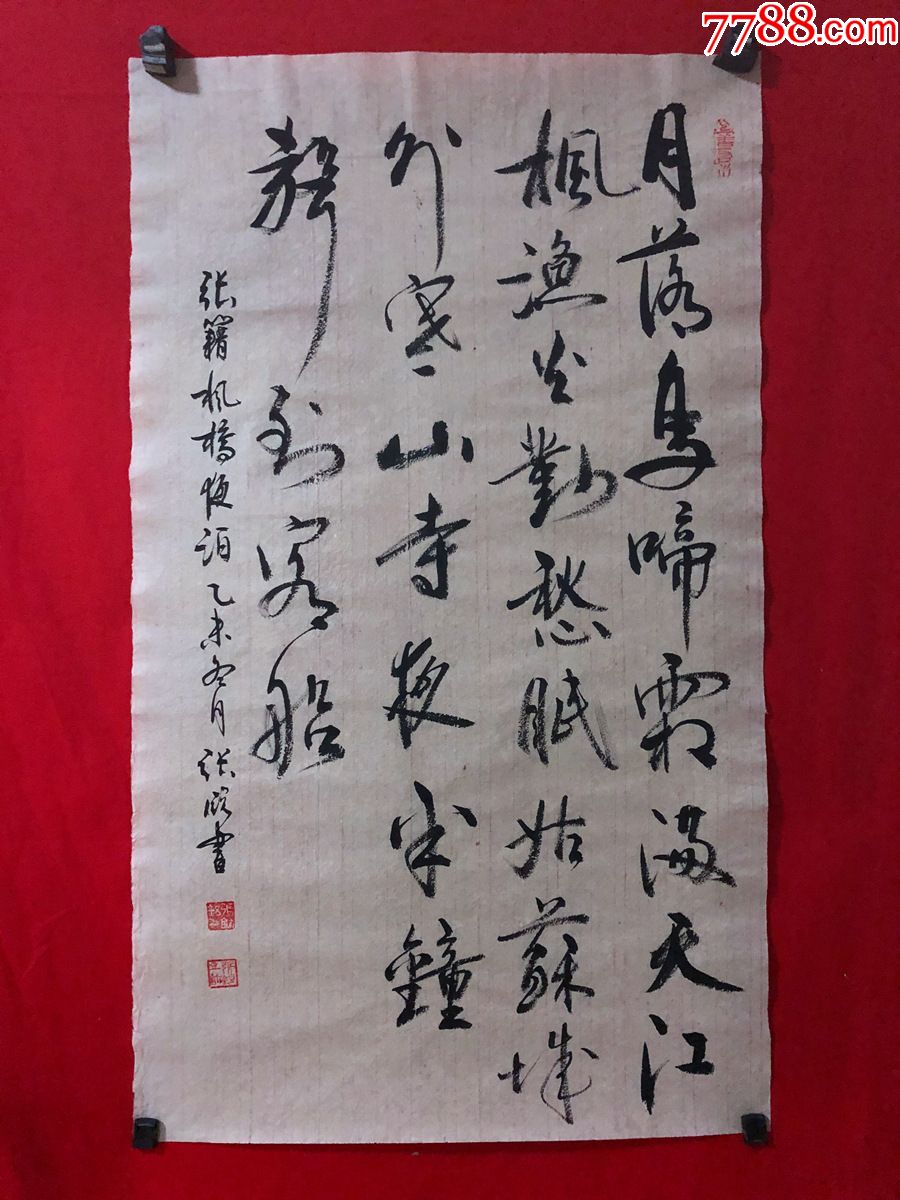 7788.com
月落烏啼霜滿天江
楓漁火對愁眠姑蘇城
外寒山寺夜半鐘
聲到客船
張籍楓橋夜泊乙未冬月張書